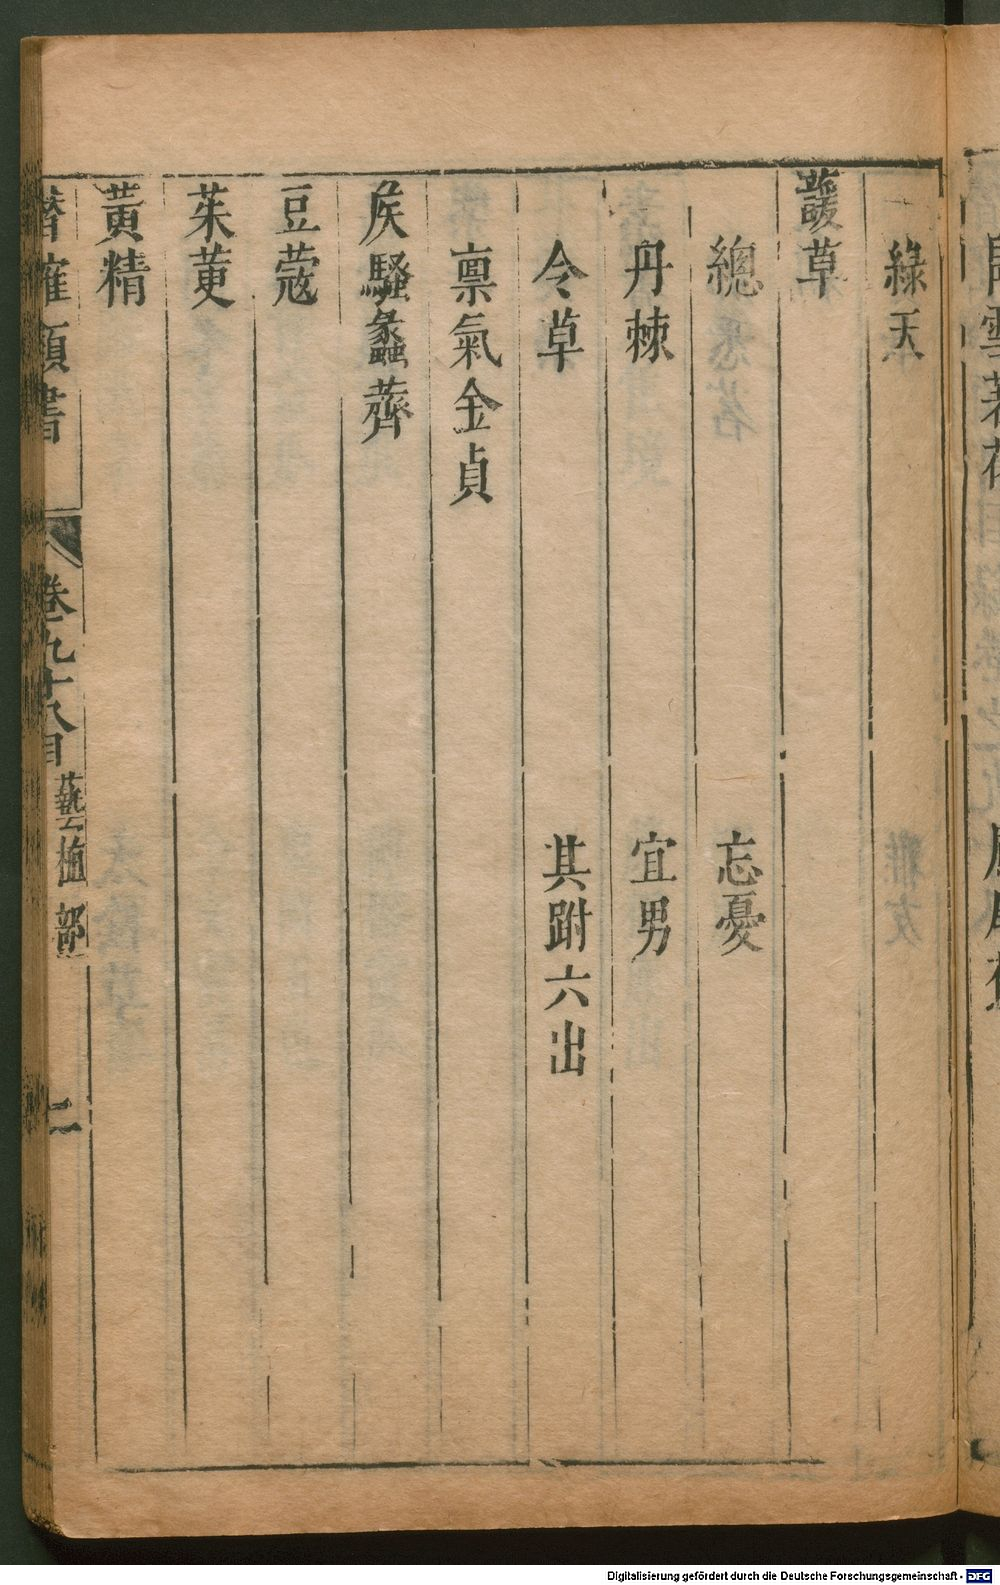 綠天
蘐草
總 忘憂
丹棘 宜男
令草 其跗六出
禀氣金貞
矦騷蠡薺
豆蔻
茱萸
黃精
潛確類書 卷九十八目 藝植部 二
Digitalisierung gefördert durch die Deutsche Forschungsgemeinschaft - DFG